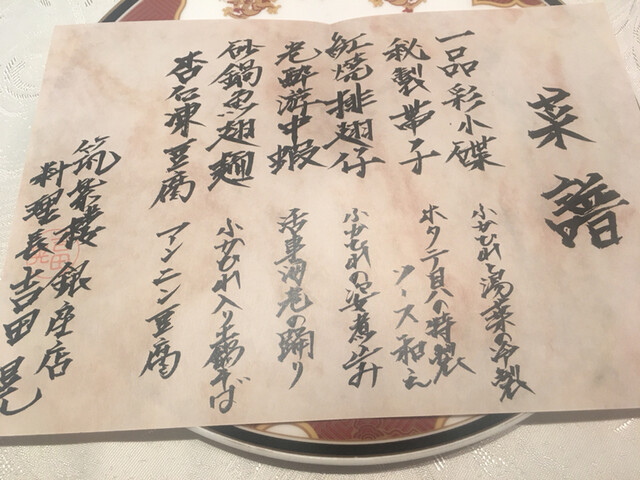 菜譜
一品彩小碟
ふかひれと湯葉の冷製
秘製帯子
ホタテ貝の特製
ソース和え
紅燒排翅仔
ふかひれの姿煮
老酔游中蝦
活車海老の踊り
砂鍋魚翅麺
ふかひれ入り土鍋そば
杏仁凍豆腐
アンニン豆腐
筑紫樓 銀座店
料理長 吉田